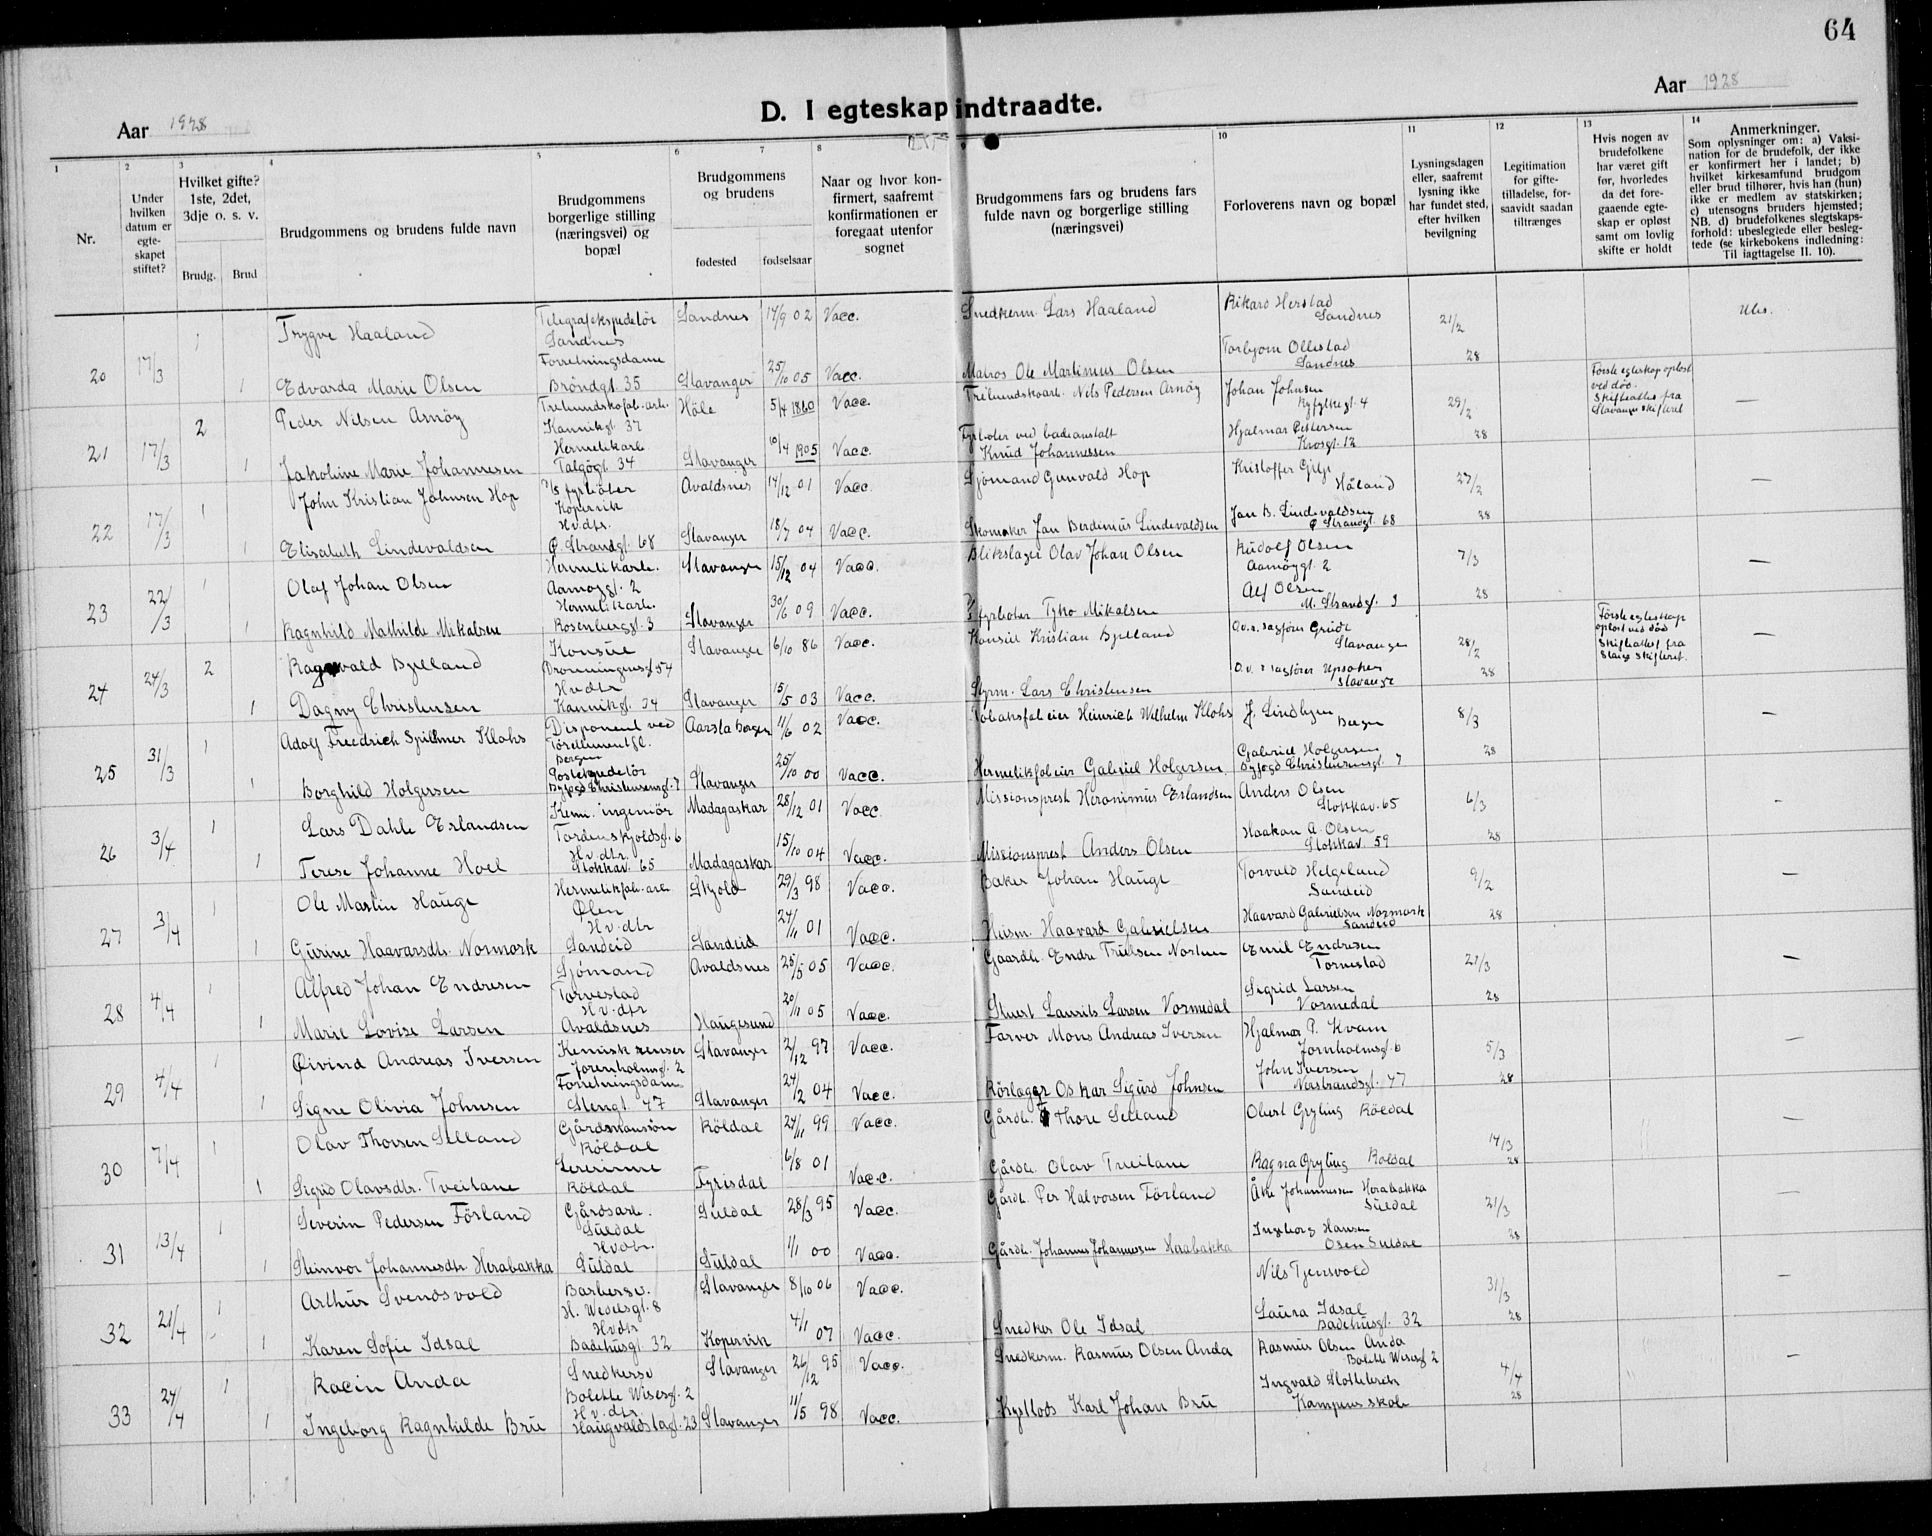 64
Aar 1928
D. I egteskap indtraadte.
Aar 1928
1 2 3 4 5 6 7 8 9 10 11 12 13 14
Nr.
Under hvilken datum er egteskapet stiftet?
Hvilket gifte? 1ste, 2det, 3dje o. s. v.
Brudg. Brud
Brudgommens og brudens fulde navn
Brudgommens borgerlige stilling (næringsvei) og bopæl
Brudgommens og brudens
fødested fødselsaar
Naar og hvor konfirmert, saafremt konfirmationen er foregaat utenfor sognet
Brudgommens fars og brudens fars fulde navn og borgerlige stilling (næringsvei)
Forloverens navn og bopæl
Lysningsdagen eller, saafremt lysning ikke har fundet sted, efter hvilken bevilgning
Legitimation for giftetilladelse, forsaavidt saadan tiltrænges
Hvis nogen av brudefolkene har været gift før, hvorledes da det foregaaende egteskap er opløst samt om lovlig skifte er holdt
Anmerkninger.
Som oplysninger om: a) Vaksination for de brudefolk, der ikke er konfirmert her i landet; b) hvilket kirkesamfund brudgom eller brud tilhører, hvis han (hun) ikke er medlem av statskirken; c) utensogns bruders hjemsted; NB. d) brudefolkenes slegtskapsforhold: ubeslegtede eller beslegtede (se kirkebokens indledning: Til iagttagelse II. 10).
20 17/3 1 Trygve Haaland Telegrafekspeditör Sandnes Sandnes 17/9 02 Vacc. Snedkerm. Lars Haaland Rikard Herstad Sandnes 21/2 28 Ubs.
1 Edvarda Marie Olsen Forretningsdame Bröndgt. 35 Stavanger 25/10 05 Vacc. Matros Ole Martinius Olsen Torbjörn Ollestad Sandnes
21 17/3 2 Peder Nilsen Arnöy Kannikgt. 37 Höle 5/4 1860 Vacc. Nils Pedersen Arnöy Johan Johnsen Ryfylkegt. 4 29/2 28 Förste egteskap oplöst ved död. Skifteattest fra Stavanger skifteret —
1 Jakoline Marie Johannesen Hermetikarb. Talgögt. 34 Stavanger 10/4 1905 Vacc. Fyrböter ved badeanstalt Knud Johannessen Hjalmar Pettersen Krosgt. 12
22 17/3 1 John Kristian Johnsen Hop fyrböter Kopervik Avaldsnes 14/12 01 Vacc. Sjömand Gunvald Hop Kristoffer Gilje Håland 27/2 28 —
1 Elisabeth Lindevaldsen Hv.dtr. Ø. Strandgt. 68 Stavanger 18/7 04 Vacc. Skomaker Jan Berdinius Lindevaldsen Jan B. Lindevaldsen Ø. Strandgt. 68
23 22/3 1 Olaf Johan Olsen Hermetikarb. Aamöygt. 2 Stavanger 15/12 04 Vacc. Blikslager Olav Johan Olsen Rudolf Olsen Aamöygt. 2 7/3 28 —
1 Ragnhild Mathilde Mikalsen Hermetikarb. Rosenberggt. 3 Stavanger 30/6 09 Vacc. Fyrböter Tyko Mikalsen Alf Olsen M. Strandgt. 3
24 24/3 2 Ragnvald Bjelland Konsul Dronningensgt 54 Stavanger 6/10 86 Vacc. Konsul Kristian Bjelland O.r. sagförer Grude Stavanger 28/2 28 Förste egteskap oplöst ved död Skifteattest fra Stavgr skifteret. —
1 Dagny Christensen Hv.dtr Kannikgt. 34 Stavanger 15/5 03 Vacc. Styrm. Lars Christensen O.r. sagförer Upsaker Stavanger
25 31/3 1 Adolf Friedrich Spillmer Klohs Disponent ved Bergen Aarstad Bergen 11/6 02 Vacc. Tobaksfabeier Heinrich Wilhelm Klohs J. Lindbjen Bergen 8/3 28 —
1 Borghild Holgersen Postekspeditör Byfogd Christensensgt. 7 Stavanger 25/10 00 Vacc. Hermetikfabeier Gabriel Holgersen. Gabriel Holgersen Byfogd Christensensgt. 7
26 3/4 1 Lars Dahle Erlandsen Kemi. ingeniör Tordenskjoldsgt. 6 Madagaskar 28/12 01 Vacc Missionsprest Heronimus Erlandsen Anders Olsen Stokkav. 65 6/3 28 —
1 Terese Johanne Hoel Hv.dtr. Stokkav. 65 Madagaskar 15/10 04 Vacc. Missionsprest Anders Olsen Haakon A. Olsen Stokkav. 59
27 3/4 1 Ole Martin Hauge Hermetikfab. arb. Ølen Skjold 29/3 98 Vacc. Baker Johan Hauge Torvald Helgeland Sandeid 9/2 28 —
1 Gurine Haavarsdtr. Normark Hv.dtr Sandeid Sandeid 24/11 01 Vacc. Husm. Haavard Gabrielsen Haavard Gabrielsen Normark Sandeid
28 4/4 1 Alfred Johan Endresen Sjömand Torvestad Avaldsnes 25/5 05 Vacc. Gaardb. Endre Truelsen Nortun Emil Endresen Torvestad 21/3 28 —
1 Marie Lovise Larsen Hv.dtr Avaldsnes Haugesund 20/11 05 Vacc. Stuert Laurits Larsen Vormedal Sigrid Larsen Vormedal
29 4/4 1 Øivind Andreas Iversen Kemisk renser Jorenholmsgt. 2 Stavanger 2/12 97 Vacc. Farver Mons Andreas Iversen Hjalmar P. Kvam Jorenholmsgt. 6 5/3 28 —
1 Signe Olivia Johnsen Forretningsdame Stengt. 47 Stavanger 24/2 04 Vacc. Rörlægger Oskar Sigurd Johnsen John Iversen Nestrandsgt. 47
30 7/4 1 Olav Thorsen Selland Röldal Röldal 24/11 99 Vacc. Gårdb. Thore Selland Obert Gryting Röldal 14/3 28 " —
1 Sigrid Olavsdtr. Tveitane Lærerinne Röldal Fyrisdal 6/8 01 Vacc. Gårdb. Olav Tveitane Ragna Gryting Röldal
31 13/4 1 Severin Pedersen Förland Gårdsarb. Suldal Suldal 28/3 95 Vacc. Gårdb. Per Halvorsen Förland Åke Johannessen Herabakka Suldal 21/3 28 —
1 Steinvor Johannesdtr. Herabakka Hv.dtr. Suldal Suldal 1/1 00 Vacc. Gårdb. Johannes Johannessen Haabakka Ingeborg Hansen Osen Suldal
32 21/4 1 Arthur Svendsvold Barbersv. H. Weselsgt. 8 Stavanger 8/10 06 Vacc. Nils Tjensvold 31/3 28 —
1 Karen Sofie Idsal Hv.dtr Badehusgt. 32 Kopervik 4/1 07 Vacc. Snedker Ole Idsal Laura Idsal Badehusgt. 32
33 24/4 1 Racin Anda Snedkersv Bolette Wiesesgt. 2 Stavanger 26/12 95 Vacc. Snedkerm. Rasmus Olsen Anda Rasmus Olsen Anda Bolette Wiesesgt 2 4/4 28 " —
1 Ingeborg Ragnhilde Bru Hv.dtr. Haugvaldstadgt. 23 Stavanger 11/5 98 Vacc. Kystlods Karl Johan Bru Ingvald Slettebrek Kampens skole